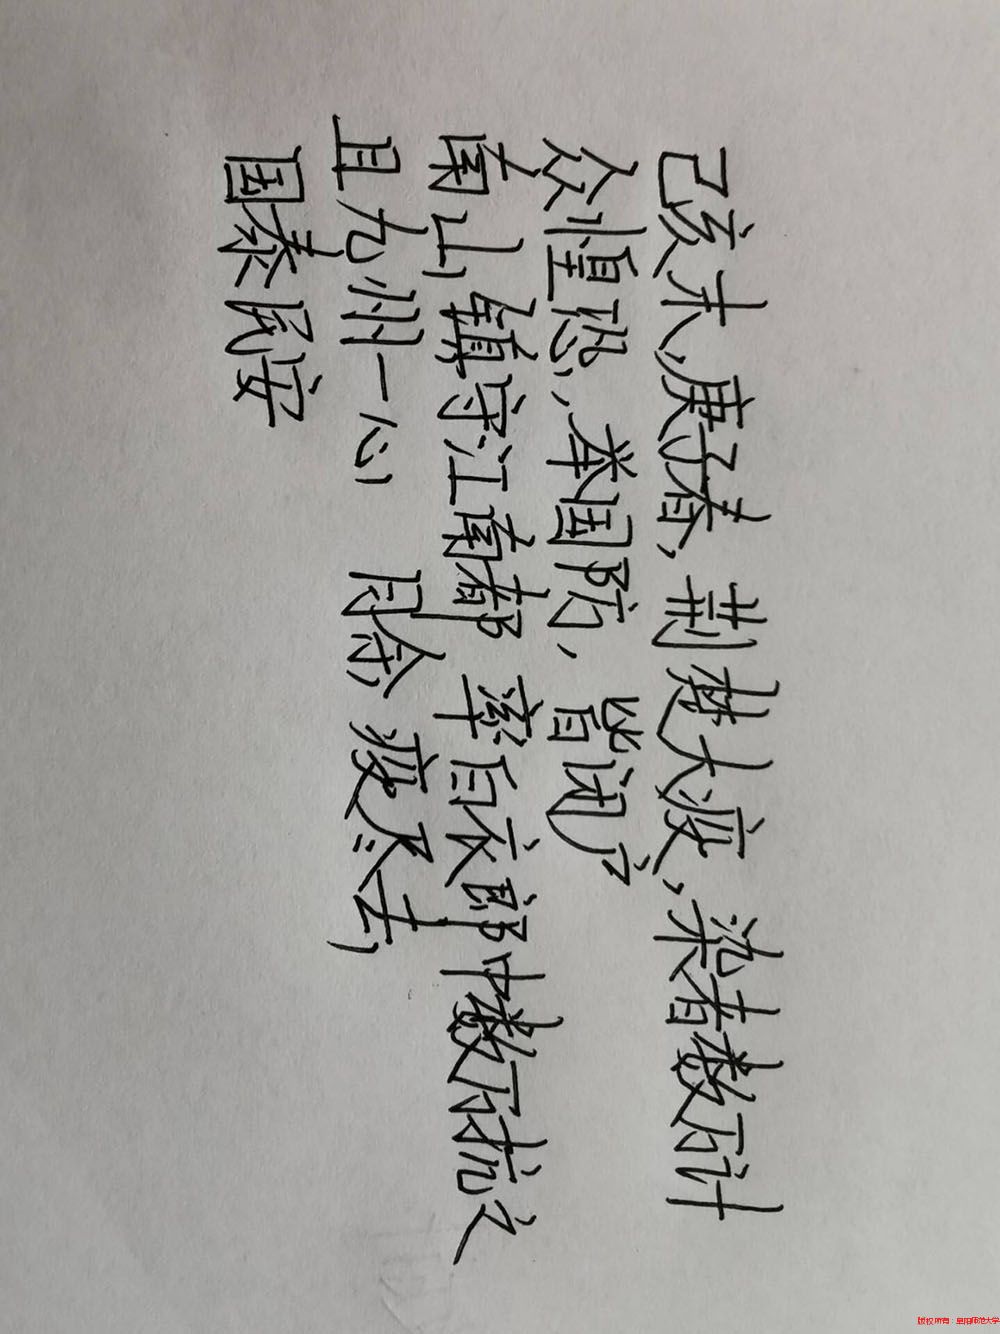 己亥末,庚子春,荆楚大疫,染者数万计
众惶恐,举国防,皆闭户
南山镇守江南都 率白衣郎中数万抗之
且九州一心 月余 疫尽去
国泰民安
版权所有:阜阳师范大学